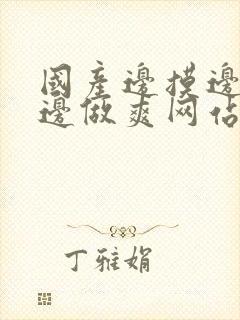 國產邊摸邊
邊做爽网佔
丁雅娟